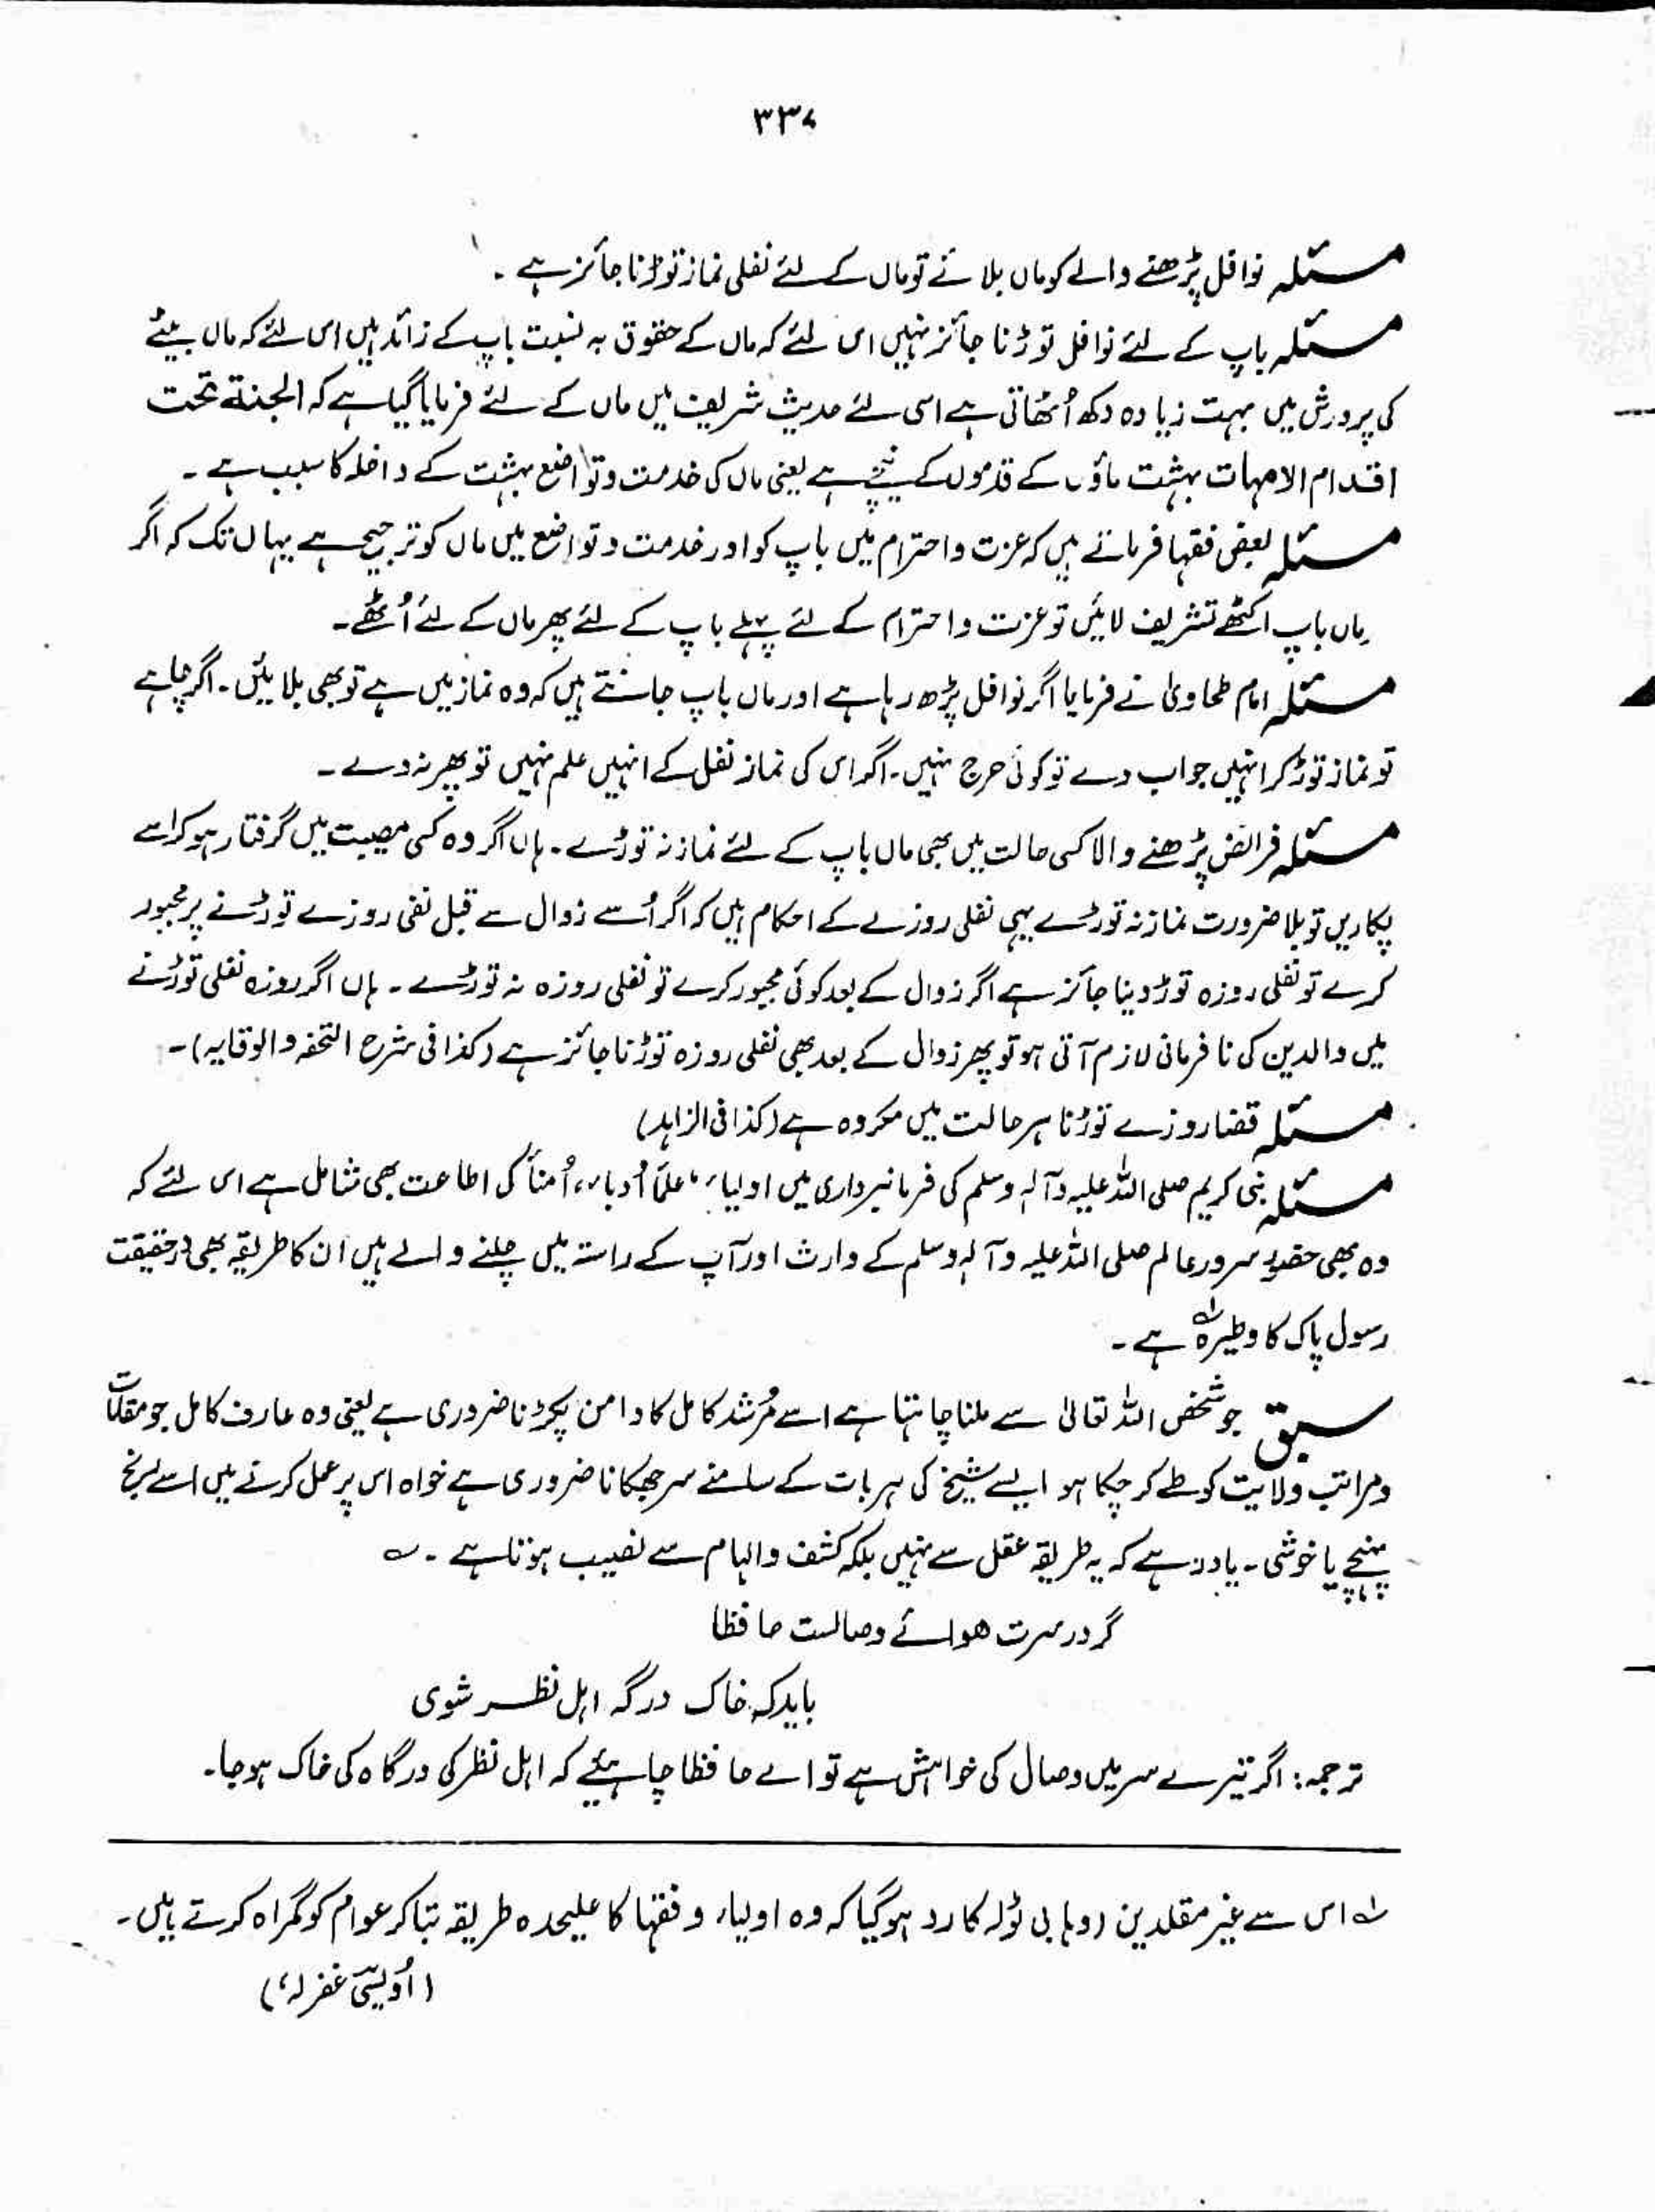 ۳۳۷
مسئلہ نوافل پڑھنے والے کو ماں بلائے تو ماں کے لئے نفلی نماز توڑنا جائز ہے ۔
مسئلہ باپ کے لئے نوافل توڑنا جائز نہیں اس لئے کہ ماں کے حقوق بہ نسبت باپ کے زائد ہیں اس لئے کہ ماں بیٹے
کی پرورش میں بہت زیادہ دکھ اُٹھاتی ہے اسی لئے حدیث شریف میں ماں کے لئے فرمایا گیا ہے کہ الجنۃ تحت
اقدام الامہات بہشت ماؤں کے قدموں کے نیچے ہے یعنی ماں کی خدمت و تواضع بہشت کے داخلہ کا سبب ہے ۔
مسئلہ بعض فقہا فرماتے ہیں کہ عزت و احترام میں باپ کو اور خدمت و تواضع میں ماں کو ترجیح ہے یہاں تک کہ اگر
ماں باپ اکٹھے تشریف لائیں تو عزت و احترام کے لئے پہلے باپ کے لئے پھر ماں کے لئے اُٹھے۔
مسئلہ امام طحاوی نے فرمایا اگر نوافل پڑھ رہا ہے اور ماں باپ جانتے ہیں کہ وہ نماز میں ہے تو بھی بلائیں ۔ اگر چاہے
تو نماز توڑ کر انہیں جواب دے تو کوئی حرج نہیں ۔ اگر اس کی نماز نفل کے انہیں علم نہیں تو پھر نہ دے ۔
مسئلہ فرائض پڑھنے والا کسی حالت میں بھی ماں باپ کے لئے نماز نہ توڑے ۔ ہاں اگر وہ کسی مصیبت میں گرفتار ہو کر اسے
پکاریں تو بلا ضرورت نماز نہ توڑے یہی نفلی روزے کے احکام ہیں کہ اگر اُسے زوال سے قبل نفی روزے توڑنے پر مجبور
کرے تو نفلی روزہ توڑ دینا جائز ہے اگر زوال کے بعد کوئی مجبور کرے تو نفلی روزہ نہ توڑے ۔ ہاں اگر روزہ نفلی توڑنے
میں والدین کی نافرمانی لازم آتی ہو تو پھر زوال کے بعد بھی نفلی روزہ توڑنا جائز ہے (کذا فی شرح التحفہ والوقایہ)۔
مسئلہ قضا روزے توڑنا ہر حالت میں مکروہ ہے (کذا فی الزاہد)
مسئلہ نبی کریم صلی اللہ علیہ وآلہٖ وسلم کی فرمانبرداری میں اولیاء، علمأ اُدباء، اُمنأ کی اطاعت بھی شامل ہے اس لئے کہ
وہ بھی حضور سرور عالم صلی اللہ علیہ وآلہٖ وسلم کے وارث اور آپ کے راستہ میں چلنے والے ہیں ان کا طریقہ بھی درحقیقت
رسول پاک کا وطیرہ لہ ہے ۔
سبق جو شخص اللہ تعالیٰ سے ملنا چاہتا ہے اسے مُرشد کامل کا دامن پکڑنا ضروری ہے یعنی وہ عارف کامل جو مقامات
و مراتب ولایت کو طے کر چکا ہو ایسے شیخ کی ہر بات کے سامنے سر جھکانا ضروری ہے خواہ اس پر عمل کرنے میں اسے رنج
پہنچے یا خوشی ۔ یاد رہے کہ یہ طریقہ عقل سے نہیں بلکہ کشف و الہام سے نصیب ہوتا ہے ۔ ؎
گر در سرت ھوائے وصالست حافظا
باید کہ خاک درگہ اہل نظر شوی
ترجمہ : اگر تیرے سر میں وصال کی خواہش ہے تو اے حافظا چاہیئے کہ اہل نظر کی درگاہ کی خاک ہو جا۔
لہ اس سے غیر مقلدین (وہابی ٹولہ کا رد ہو گیا کہ وہ اولیاء و فقہا کا علیحدہ طریقہ بتا کر عوام کو گمراہ کرتے ہیں ۔
(اُویسی غفرلہ)